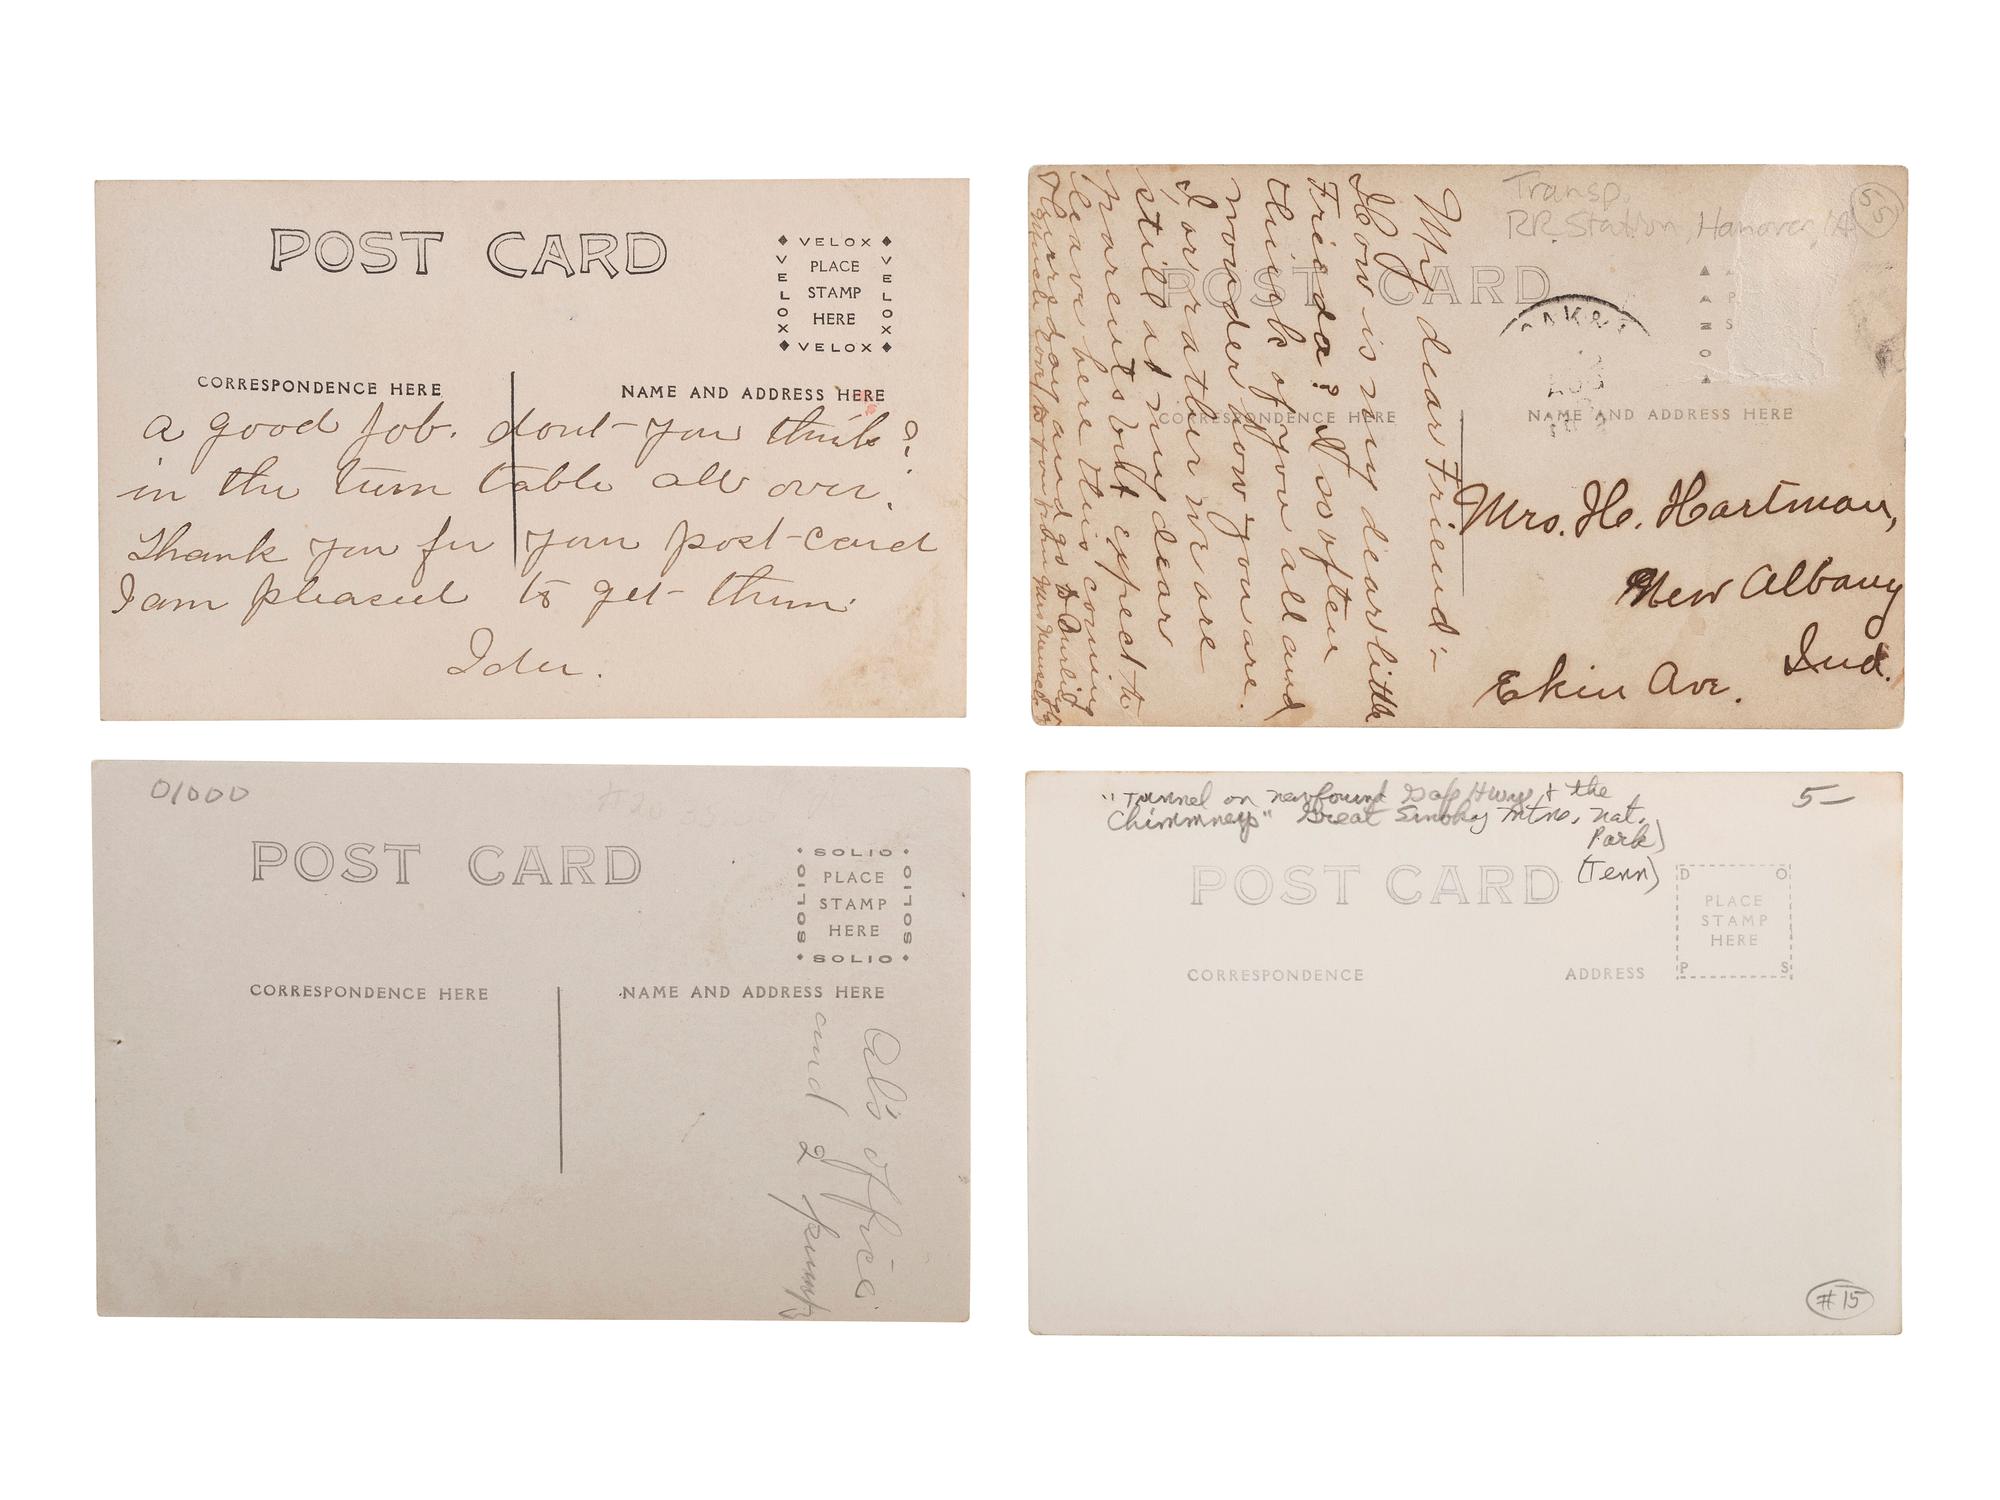 POST CARD
VELOX
VELOX
VELOX
VELOX
PLACE
STAMP
HERE
CORRESPONDENCE HERE
NAME AND ADDRESS HERE
a good job. dont you think?
in the turn table all over.
Thank you for your post-card
I am pleased to get them.
Transp.
RR. Station, Hanover, IA
55
POST CARD
CORRESPONDENCE HERE
NAME AND ADDRESS HERE
AUG
My dear Friend:-
How is my dear little
Frieda? I so often
think of you all and
wonder how you are.
for rather we are
still at my dear
parents but expect to
leave here this coming
Thursday and go to
Mrs. H. Hartman,
New Albany
Ind.
Ekin Ave.
01000
POST CARD
SOLIO
SOLIO
SOLIO
SOLIO
PLACE
STAMP
HERE
CORRESPONDENCE HERE
NAME AND ADDRESS HERE
Al's office
and 2 pumps
"Tunnel on newfound Gap Hwy & the
Chimmneys" Great Smoky Mtns. Nat.
Park)
(Tenn)
5-
POST CARD
D O
PLACE
STAMP
HERE
P S
CORRESPONDENCE
ADDRESS
#15